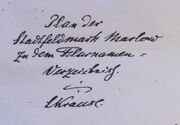 Plan der
Stadtfeldmark Marlow
zu dem Flurnamen-
Verzeichnis.
Krause.